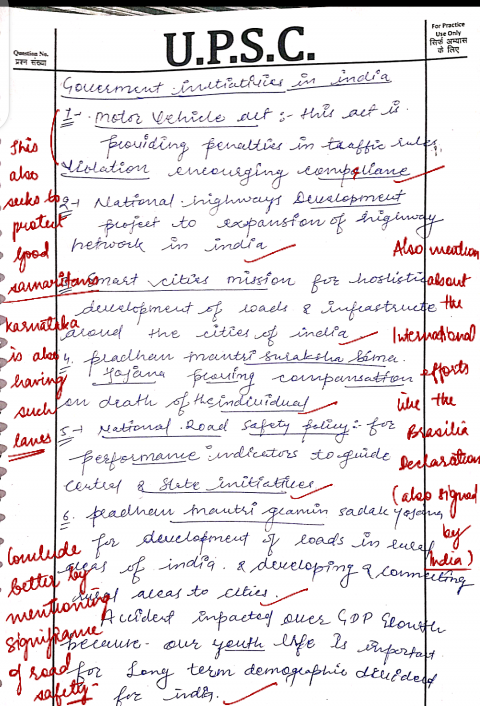 Question No.
प्रश्न संख्या
U.P.S.C.
For Practice
Use Only
सिर्फ अभ्यास
के लिए
Government initiatives in india
1- Motor Vehicle act :- this act is
providing penalties in traffic rules
violation encouraging compliane
2- National highways Development
project to expansion of highway
network in india
Smart cities mission for hoslistic
development of roads & infrastructe
around the cities of india
4. pradhan mantri suraksha bima
Yojana proving compansation
on death of the individual
5- National Road Safety policy:- for
performance indicators to guide
Central & State initiatives
6. pradhan mantri gramin sadak yojana
for development of roads in rural
areas of india. & developing & connecting
rural areas to cities.
Accident impacted over GDP Growth
because our youth life is important
for long term demographic dividend
for india.
This
also
seeks to
protect
Good
samaritans
Karnataka
is also
having
such
laws
Conclude
better by
mentioning
significance
of road
safety-
Also mention
about
the
International
efforts
like the
Brasilia
Declaration
(also signed
by
India)